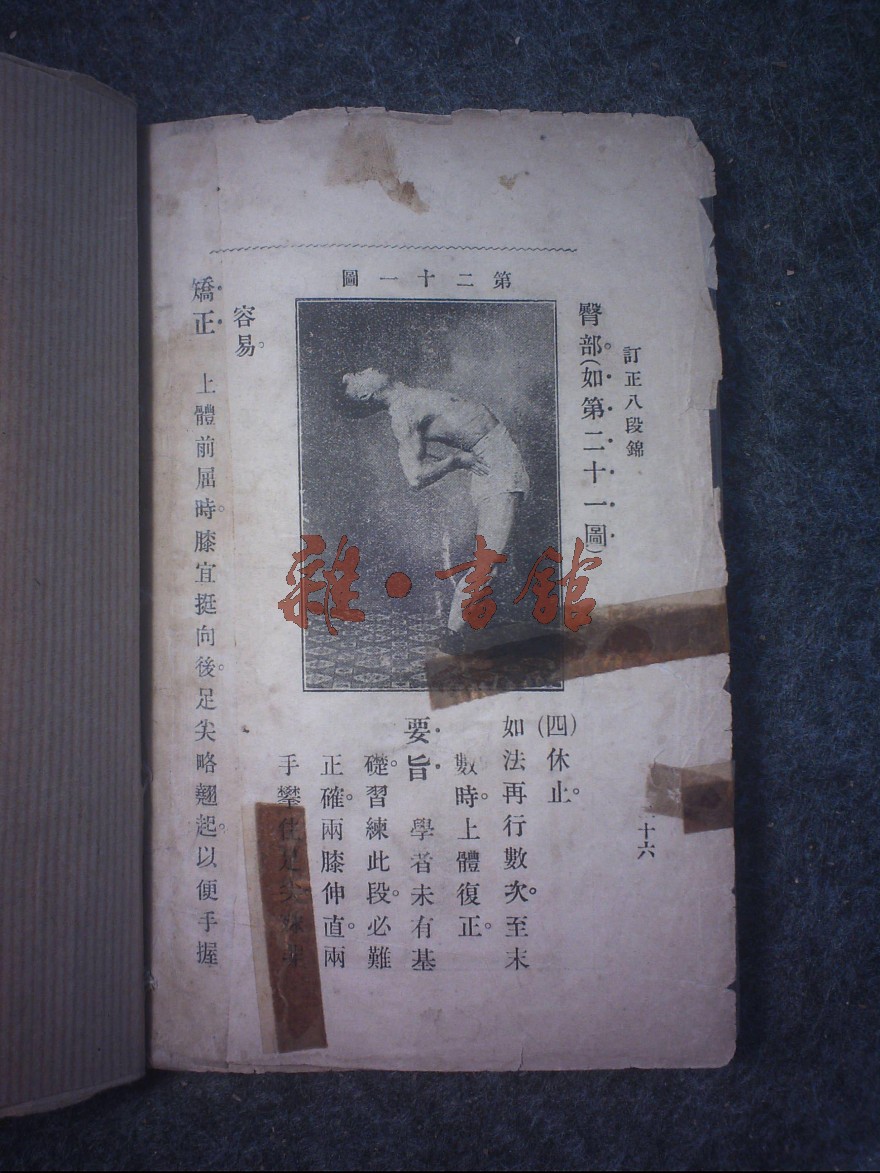 訂正八段錦
十六
臀部。(如第二十一圖)
第二十一圖
(四)休止。
如法再行數次。至末
數時。上體復正。
要旨 學者未有基
礎。習練此段。必難
正確。兩膝伸直。兩
手攀住足尖殊非
容易。
矯正 上體前屈時。膝宜挺向後。足尖略翹起。以便手握
雜·書館